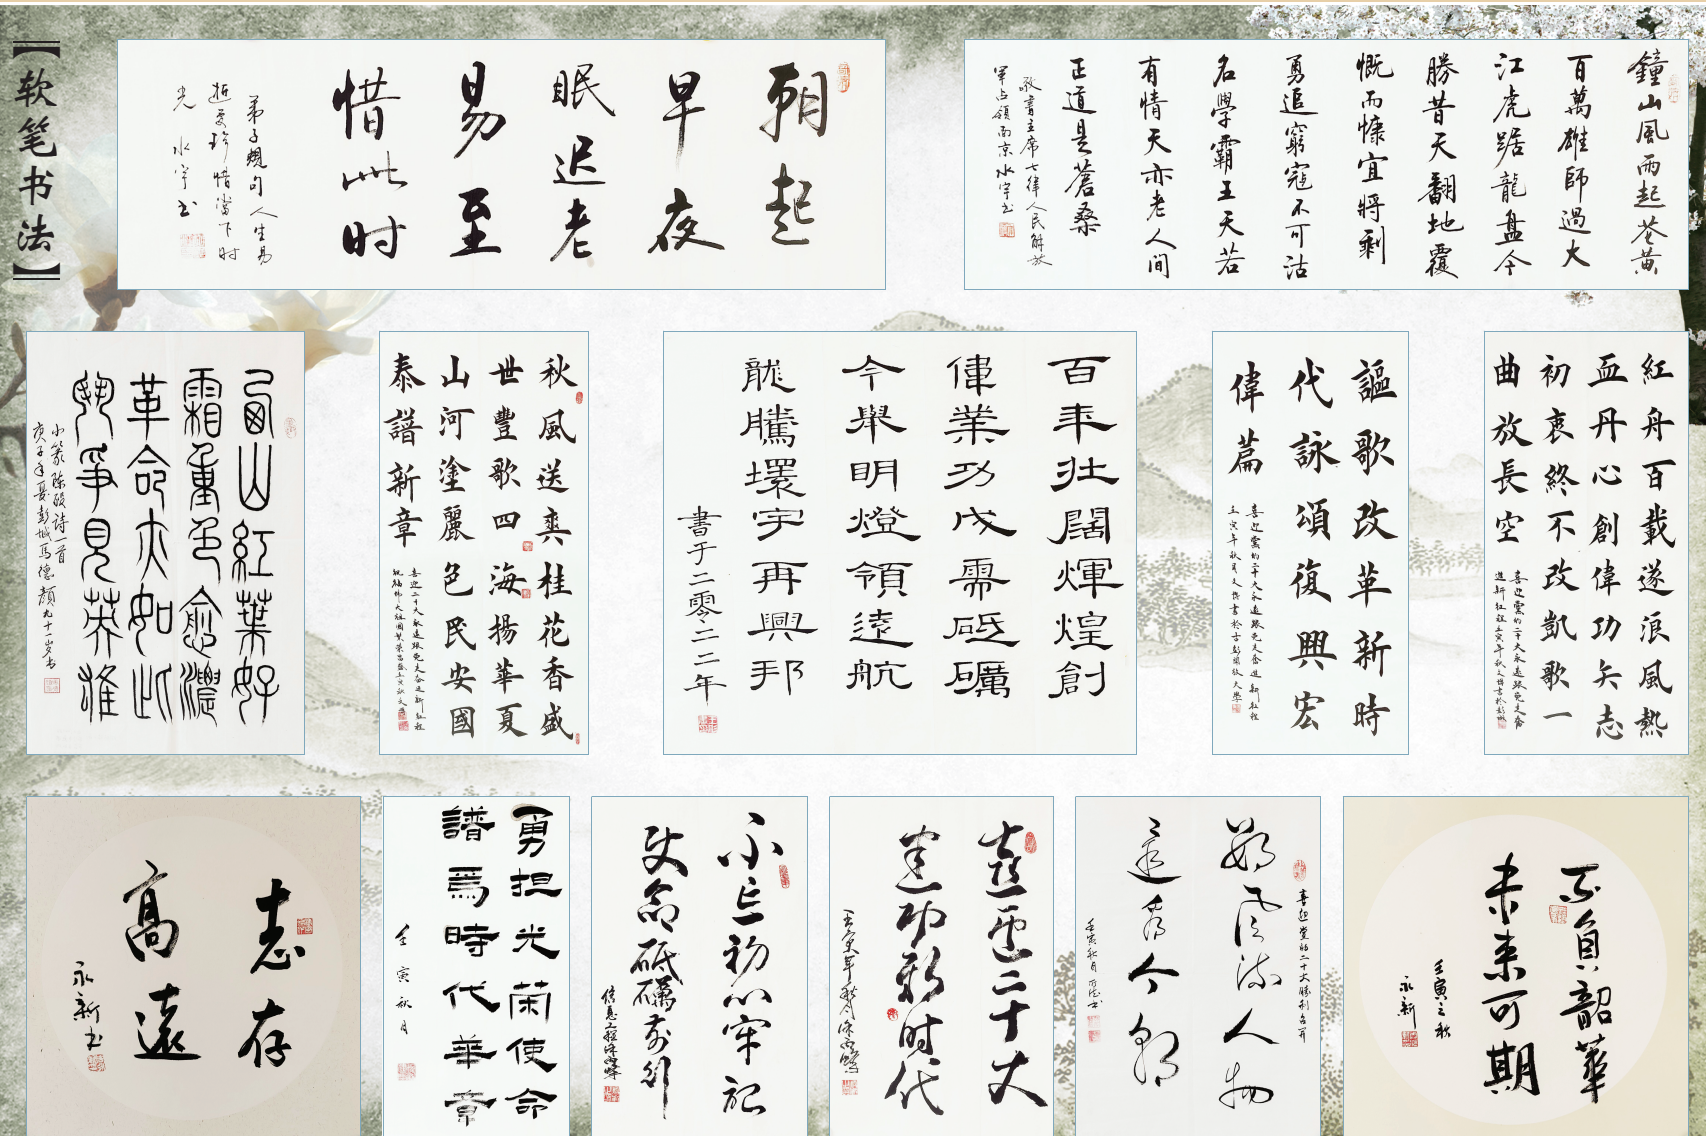 【软笔书法】
朝起
早夜
眠迟
老易
至惜
此时
弟子规句 人生易
逝要珍惜当下时
光 水宇书
鐘山風雨起苍黄
百萬雄師過大
江虎踞龍盘今
勝昔天翻地覆
慨而慷宜將剩
勇追窮寇不可沽
名學霸王天若
有情天亦老人间
正道是蒼桑
敬書主席七律人民解放
軍占領南京 水宇书
西山紅葉好
霜重色愈濃
革命亦如此
鬥爭見英雄
小篆陈毅诗一首
庚子年夏彭城馬德顏九十一岁书
秋風送爽桂花香盛
世豐歌四海揚華夏
山河塗麗色民安國
泰譜新章
百年壮闊煇煌創
偉業功成需砥礪
今舉明燈領遠航
龍騰環宇再興邦
書于二零二二年
謳歌改革新時
代詠頌復興宏
偉篇
紅舟百載逐浪風熱
血丹心創偉功矢志
初衷終不改凱歌一
曲放長空
志存
高遠
永新书
勇担光荣使命
譜寫時代華章
壬寅秋月
不忘初心牢记
使命砥礪前行
喜迎二十大
建功新时代
数风流人物
还看今朝
喜迎党的二十大勝利召开
不負韶華
未来可期
壬寅之秋
永新